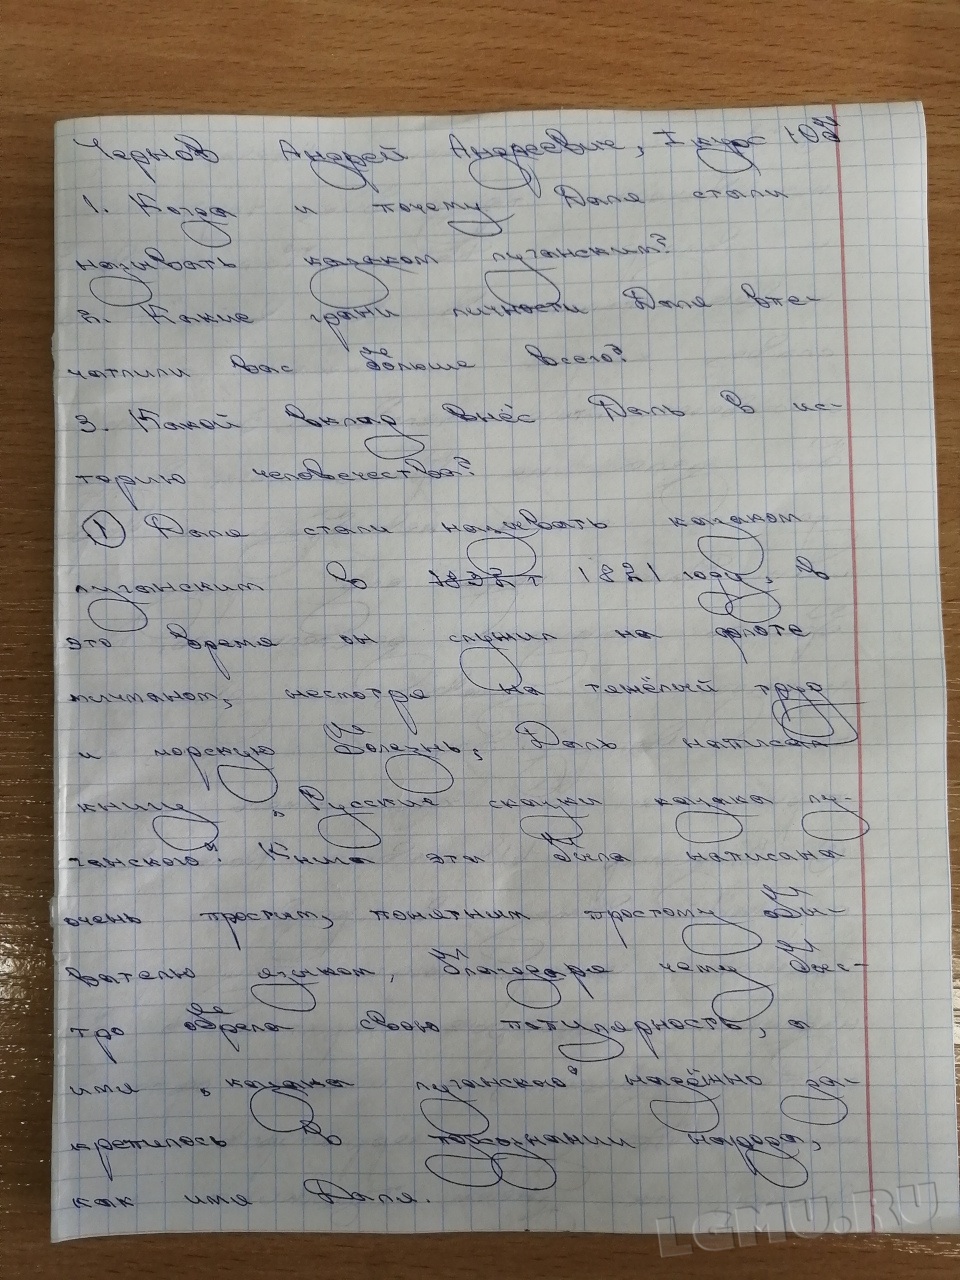 Чернов Андрей Андреевич, I курс 10
1. Когда и почему Даля стали
называть казаком луганским?
2. Какие грани личности Даля впе-
чатлили вас больше всего?
3. Какой вклад внёс Даль в ис-
торию человечества?
1 Даля стали называть казаком
луганским в 1832 г 1821 году, в
это время он служил на флоте
мичманом, несмотря на тяжёлый труд
и морскую болезнь, Даль написал
книгу „Русские сказки казака лу-
ганского". Книга эта была написана
очень простым, понятным простому обы-
вателю языком, благодаря чему быс-
тро обрела свою популярность, а
имя „казака луганского" надёжно за-
крепилось в подсознании народа,
как имя Даля.
LGMU.RU